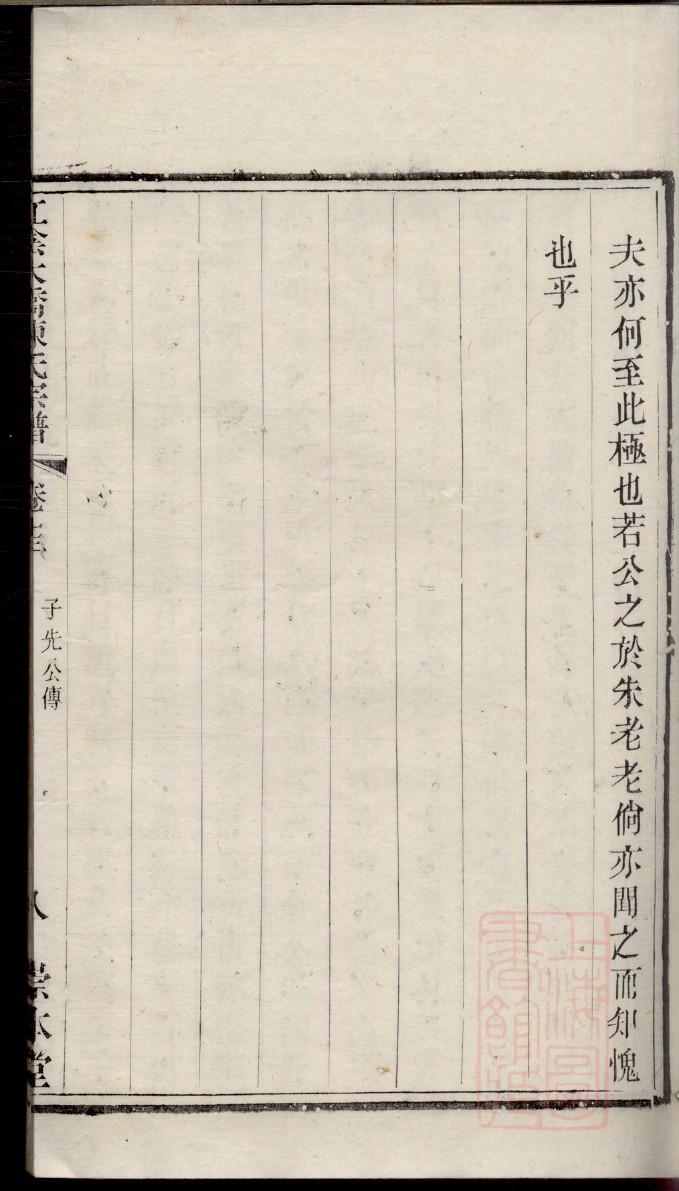 夫亦何至此極也若公之於朱老老倘亦聞之而知愧
也乎
江陰大橋陳氏宗譜
子先公傳
八
崇本堂
上海圖
書館藏